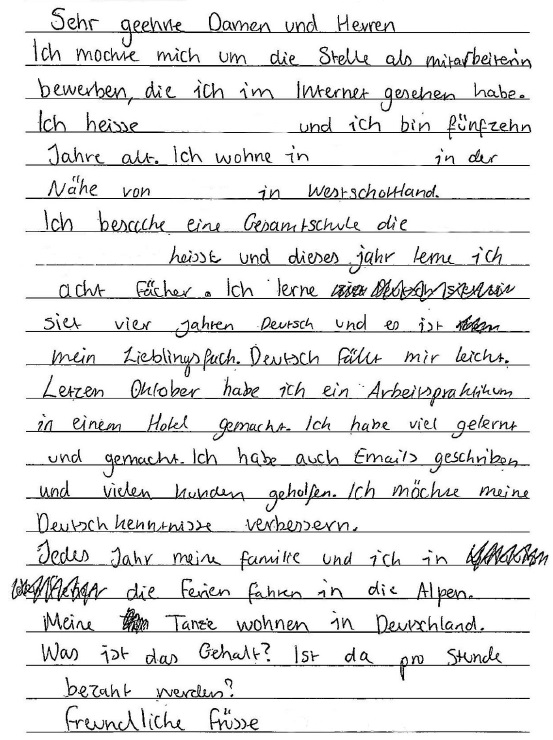 Sehr geehrte Damen und Herren
Ich mochte mich um die Stelle als mitarbeiterin
bewerben, die ich im Internet gesehen habe.
Ich heisse und ich bin fünfzehn
Jahre alt. Ich wohne in in der
Nähe von in Westschottland.
Ich besuche eine Gesamtschule die
heisst und dieses jahr lerne ich
acht Fächer. Ich lerne
siet vier Jahren Deutsch und es ist
mein Lieblingsfach. Deutsch fällt mir leicht.
Letzen Oktober habe ich ein Arbeitspraktikum
in einem Hotel gemacht. Ich habe viel gelernt
und gemacht. Ich habe auch Emails geschriben
und vielen kunden geholfen. Ich möchte meine
Deutschkenntnisse verbessern.
Jedes Jahr meine familie und ich in
die Ferien fahren in die Alpen.
Meine Tante wohnen in Deutschland.
Was ist das Gehalt? Ist da pro Stunde
bezaht werden?
freundliche Grüsse